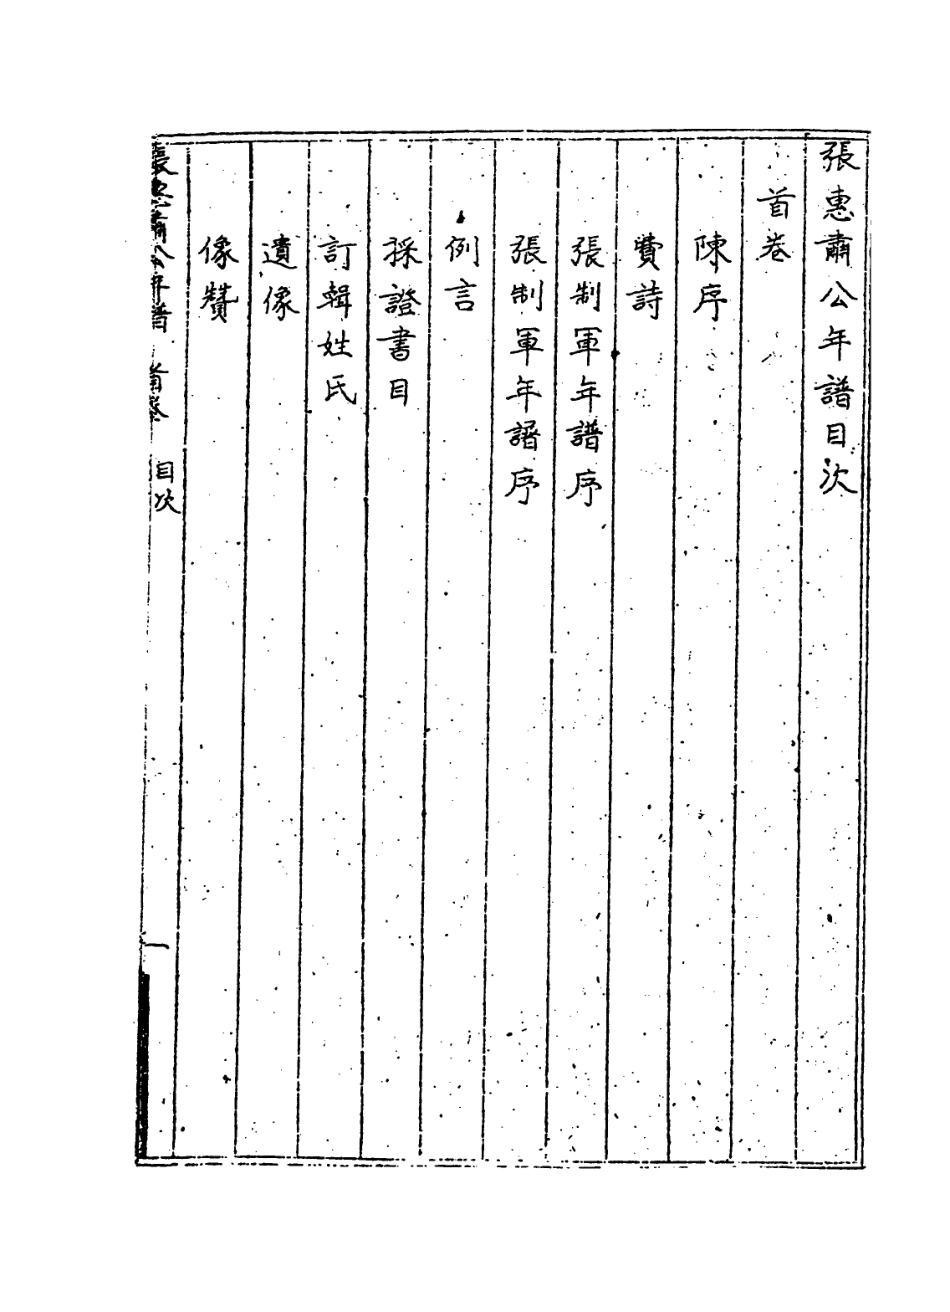 張惠肅公年譜目次
首卷
陳序
費詩
張制軍年譜序
張制軍年譜序
例言
採證書目
訂輯姓氏
遺像
像贊
張惠肅公年譜 首卷 目次 一